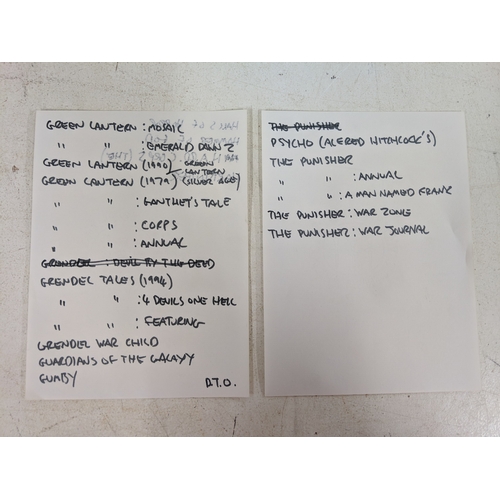 GREEN LANTERN : MOSAIC
" " : EMERALD DAWN 2
GREEN LANTERN (1990) GREEN LANTERN
GREEN LANTERN (1979) (SILVER AGE)
" " : GANTHET'S TALE
" " : CORPS
" " : ANNUAL
GRENDEL : DEVIL BY THE DEED
GRENDEL TALES (1994)
" " : 4 DEVILS ONE HELL
" " : FEATURING
GRENDEL WAR CHILD
GUARDIANS OF THE GALAXY
GUMBY
P.T.O.
THE PUNISHER
PSYCHO (ALFRED HITCHCOCK'S)
THE PUNISHER
" " : ANNUAL
" " : A MAN NAMED FRANK
THE PUNISHER : WAR ZONE
THE PUNISHER : WAR JOURNAL